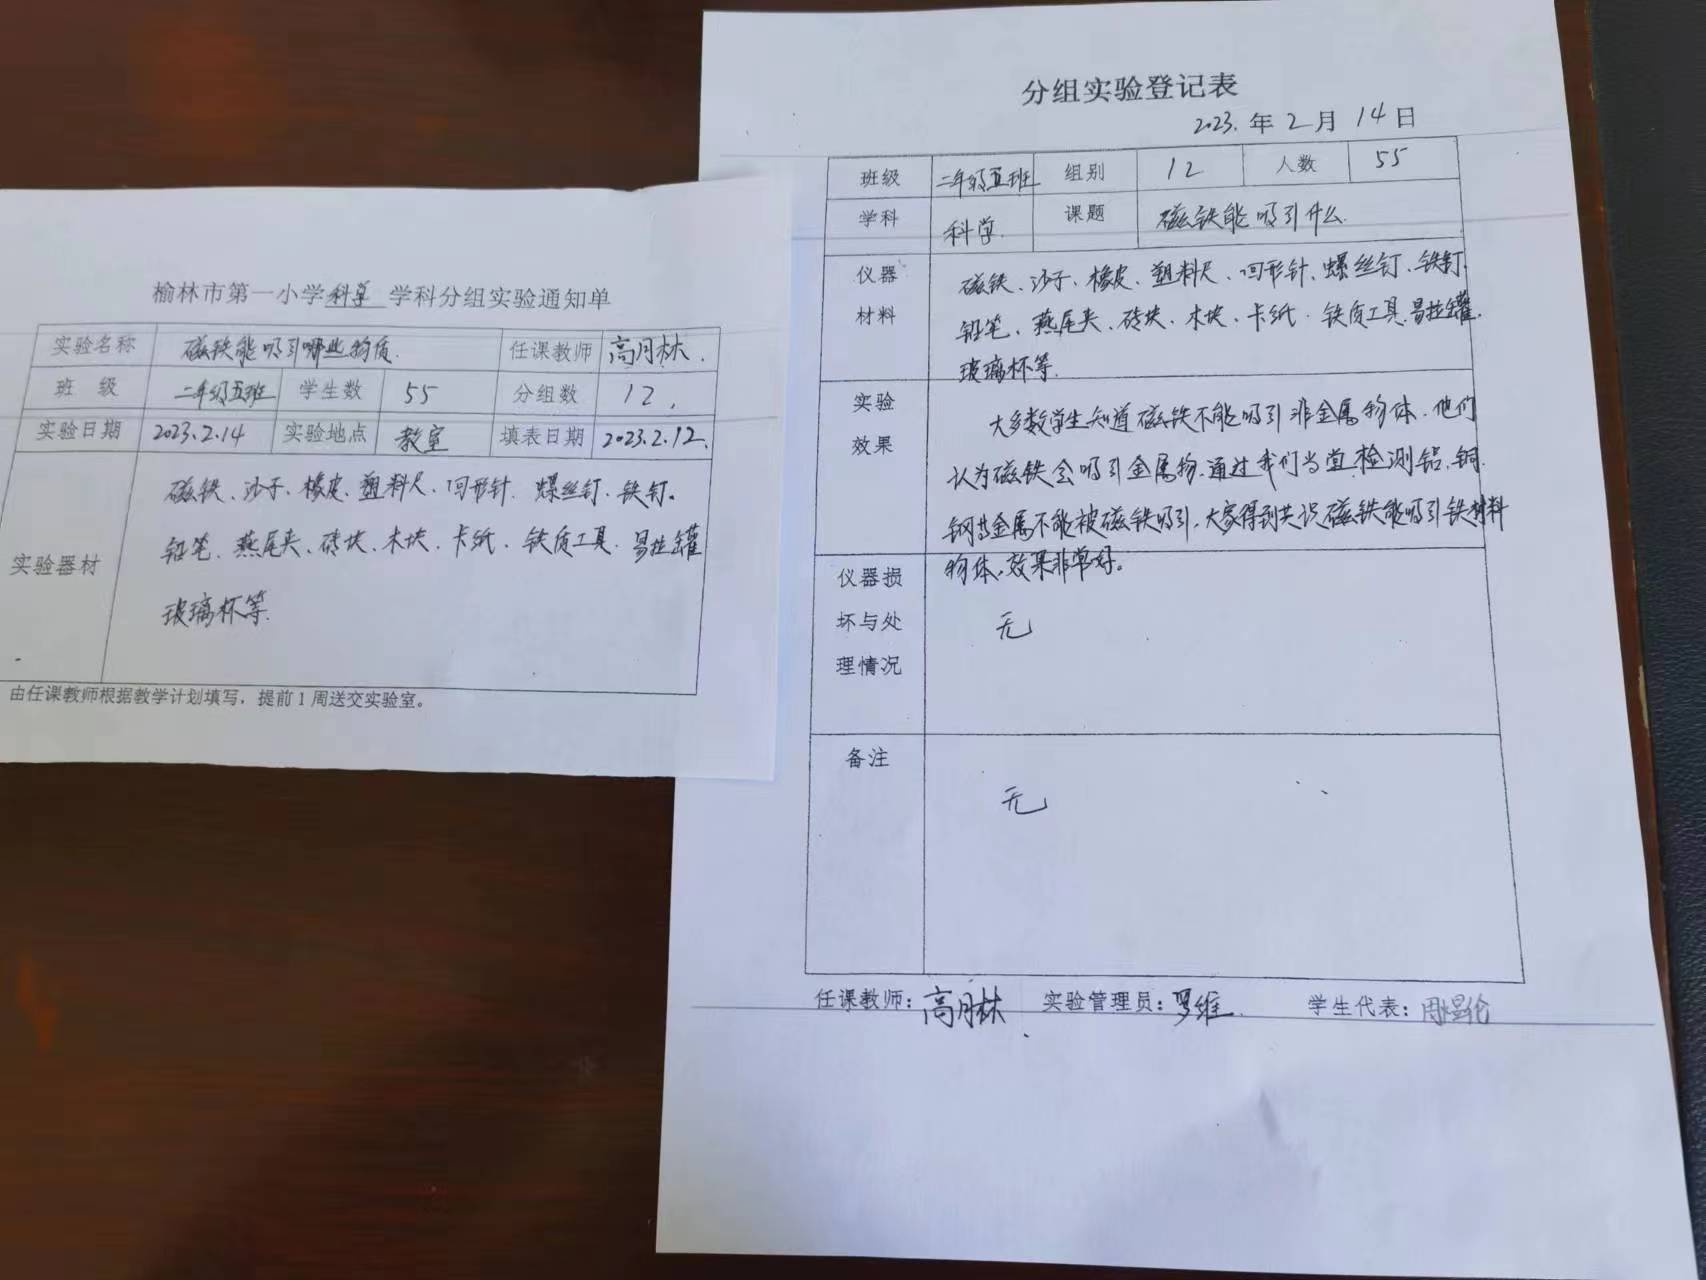 榆林市第一小学科学学科分组实验通知单
实验名称 磁铁能吸引哪些物质. 任课教师 高月林.
班 级 二年级五班 学生数 55 分组数 12.
实验日期 2023.2.14 实验地点 教室 填表日期 2023.2.12.
实验器材
磁铁、沙子、橡皮、塑料尺、回形针、螺丝钉、铁钉、
铅笔、燕尾夹、砖块、木块、卡纸、铁质工具、易拉罐
玻璃杯等.
由任课教师根据教学计划填写，提前1周送交实验室。
分组实验登记表
2023.年2月14日
班级 二年级五班 组别 12 人数 55
学科 科学. 课题 磁铁能吸引什么.
仪器
材料
磁铁、沙子、橡皮、塑料尺、回形针、螺丝钉、铁钉.
铅笔、燕尾夹、砖块、木块、卡纸、铁质工具.易拉罐.
玻璃杯等.
实验
效果
大多数学生知道磁铁不能吸引非金属物体.他们
认为磁铁会吸引金属物.通过我们当堂检测铝.铜.
钢等金属不能被磁铁吸引,大家得到共识磁铁能吸引铁材料
物体,效果非常好。
仪器损
坏与处
理情况
无
备注
无
任课教师：高月林 实验管理员：罗维. 学生代表：周煜伦